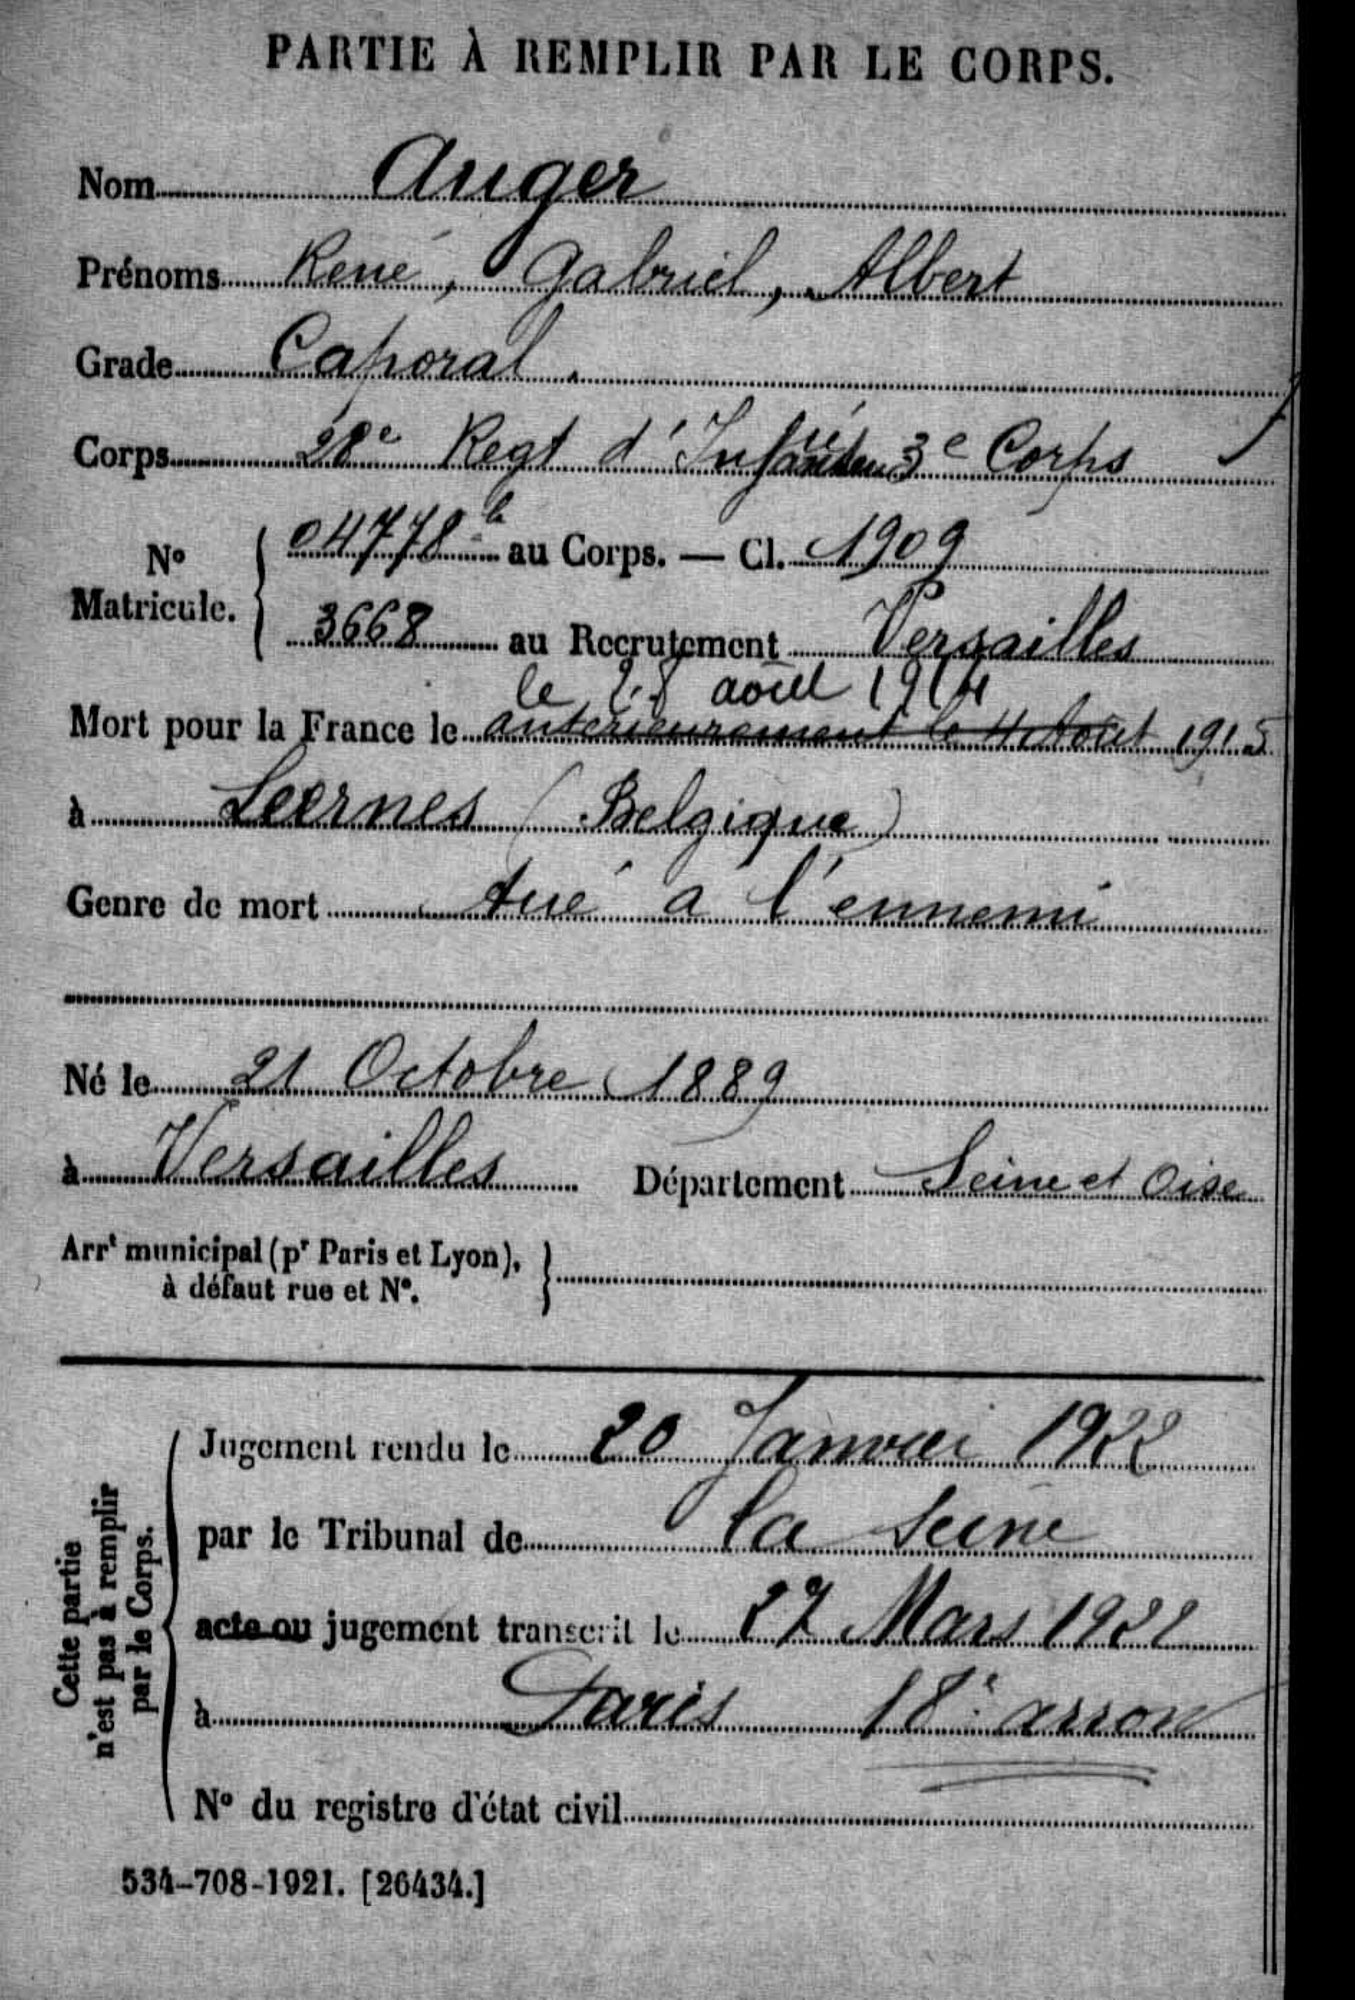 PARTIE À REMPLIR PAR LE CORPS.
Nom Auger
Prénoms René, Gabriel, Albert
Grade Caporal.
Corps 28e Regt d'Infanterie 3e Corps
No Matricule. 04778 au Corps. — Cl. 1909
3668 au Recrutement Versailles
le 28 août 1914
Mort pour la France le antérieurement le 4 Août 1915
à Leernes (Belgique)
Genre de mort tué à l'ennemi
Né le 21 Octobre 1889
à Versailles Département Seine et Oise
Arrt municipal (pr Paris et Lyon),
à défaut rue et No.
Cette partie
n'est pas à remplir
par le Corps.
Jugement rendu le 20 Janvier 1922
par le Tribunal de la Seine
acte ou jugement transcrit le 27 Mars 1922
à Paris 18e arron
No du registre d'état civil
534-708-1921. [26434.]